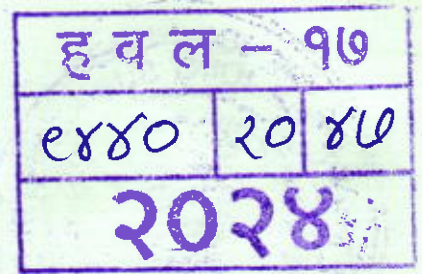 ह व ल - १७
९४४० २० ४७
२०२४